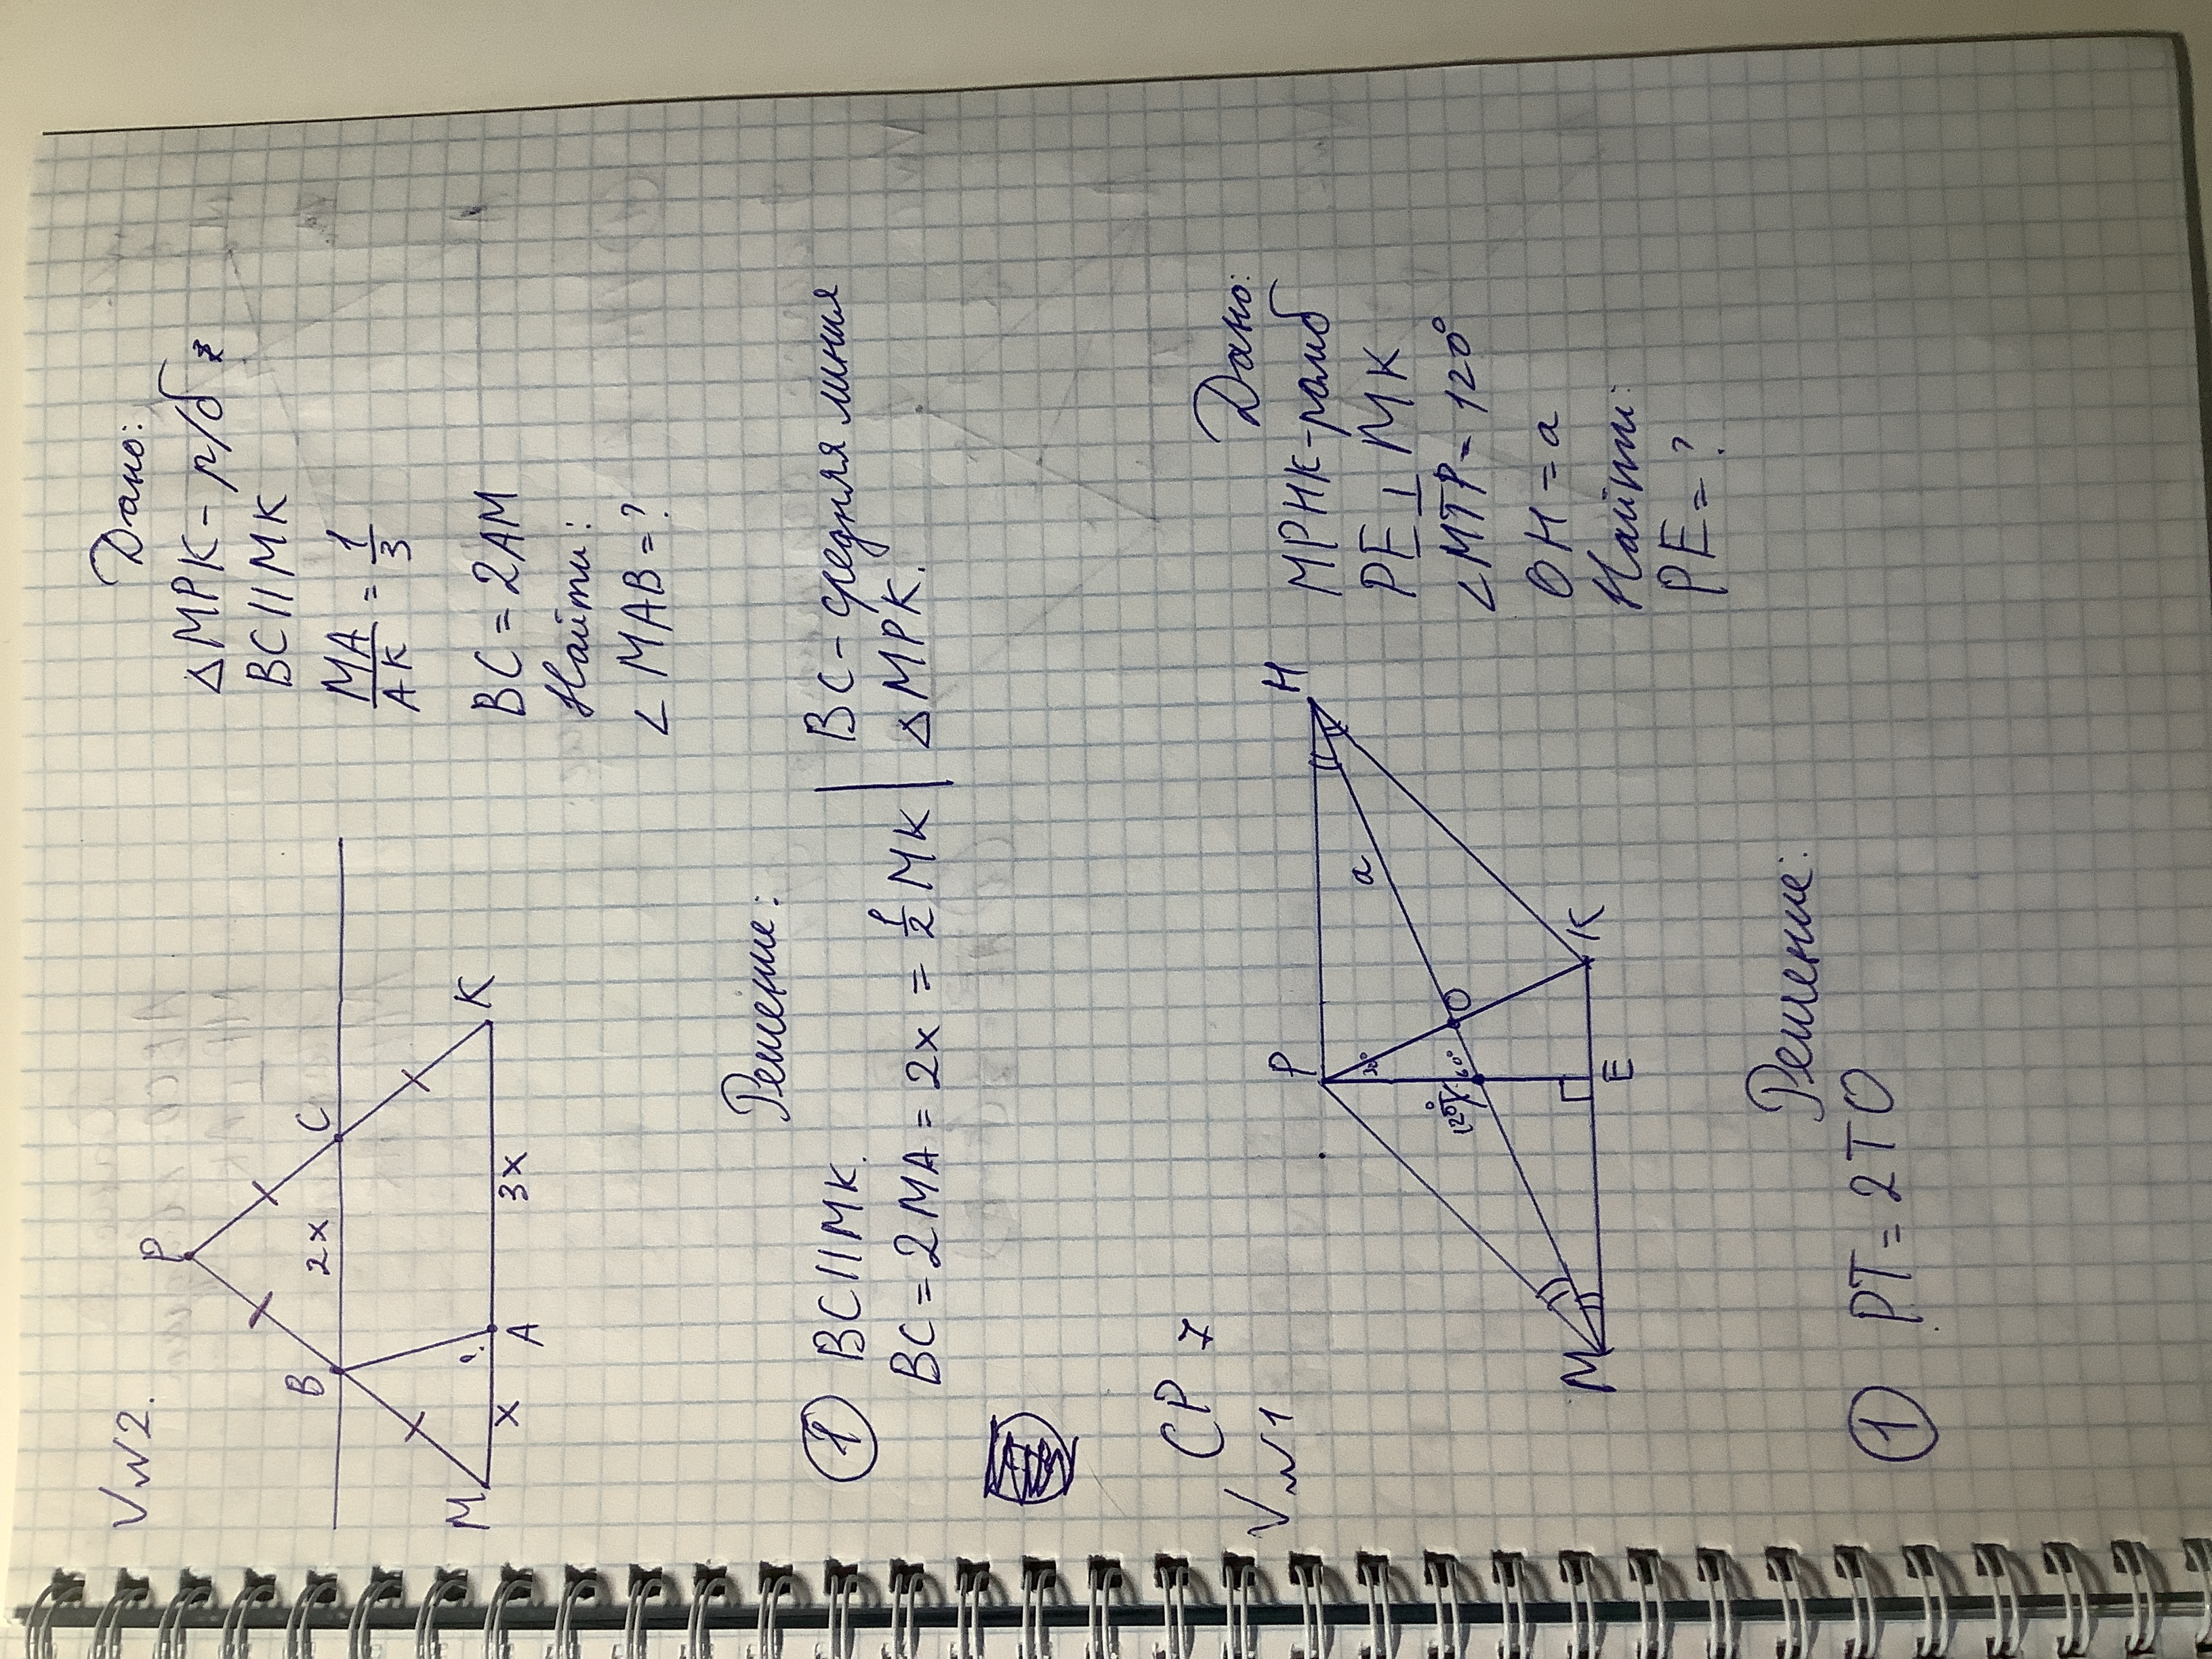 V №2.
P
B
2x
C
M
x
A
3x
K
Дано:
△MPK - р/б
BC // MK
MA/AK = 1/3
BC = 2AM
Найти:
∠ MAB = ?
Решение:
① BC // MK.
BC = 2MA = 2x = 1/2 MK
BC - средняя линия
△MPK.
СР 7
V №1
P
H
30°
a
120°
T
60°
O
M
E
K
Дано:
MPHK - ромб
PE ⊥ MK
∠MTP = 120°
OH = a
Найти:
PE = ?
Решение:
① PT = 2TO